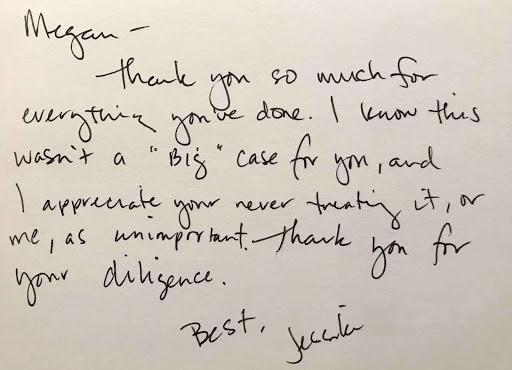 Megan -
thank you so much for
everything you've done. I know this
wasn't a "Big" case for you, and
I appreciate your never treating it, or
me, as unimportant. Thank you for
your diligence.
Best,